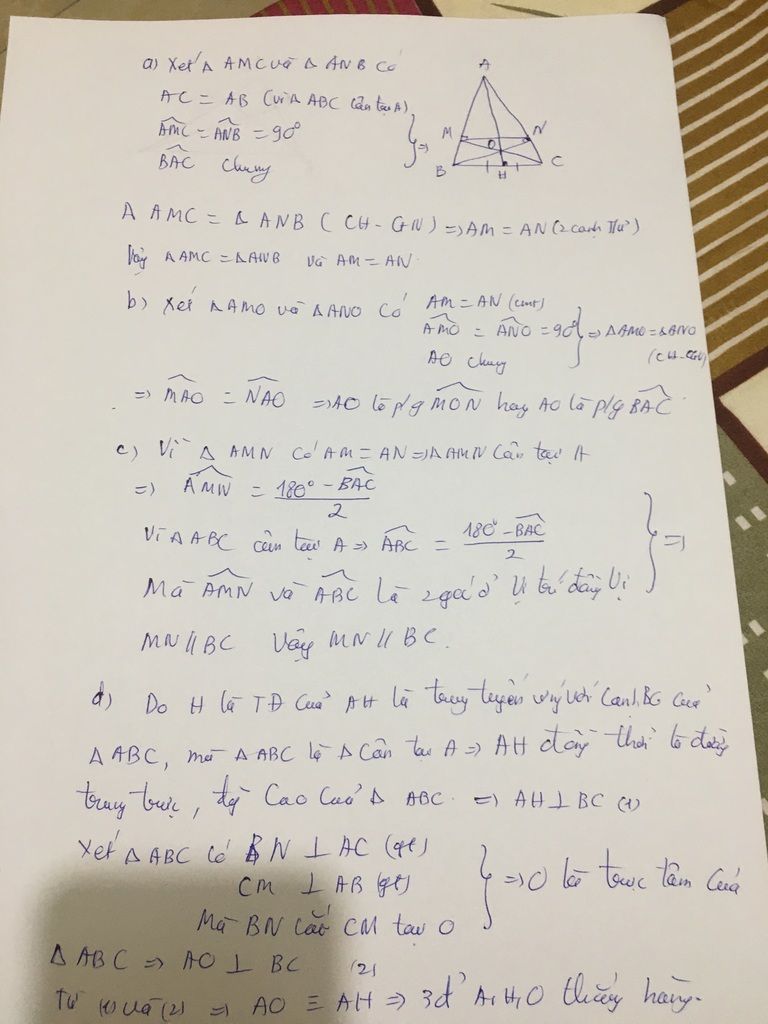 a) Xét Δ AMC và Δ ANB có
AC = AB (vì Δ ABC cân tại A)
AMC = ANB = 90°
BAC chung
} =>
A
M
N
O
B
H
C
Δ AMC = Δ ANB (CH - GN) => AM = AN (2 cạnh Tư²)
Vậy Δ AMC = Δ ANB và AM = AN.
b) Xét Δ AMO và Δ ANO có AM = AN (cmt)
AMO = ANO = 90° } => Δ AMO = Δ ANO
AO chung (CH - CGV)
=> MAO = NAO => AO là p/g MON hay AO là p/g BAC
c) Vì Δ AMN có AM = AN => Δ AMN cân tại A
=> AMN = 180° - BAC / 2
Vì Δ ABC cân tại A => ABC = 180° - BAC / 2 } =>
Mà AMN và ABC là 2 góc ở vị trí đồng vị
MN // BC Vậy MN // BC.
d) Do H là TĐ của AH là trung tuyến ứng với cạnh BC của
Δ ABC, mà Δ ABC là Δ cân tại A => AH đồng thời là đường
trung trực, đg Cao Của Δ ABC. => AH ⊥ BC (1)
Xét Δ ABC có BN ⊥ AC (gt)
CM ⊥ AB (gt) } => O là trực tâm của
Mà BN cắt CM tại O
Δ ABC => AO ⊥ BC (2)
Từ (1) và (2) => AO ≡ AH => 3 đ' A, H, O thẳng hàng.